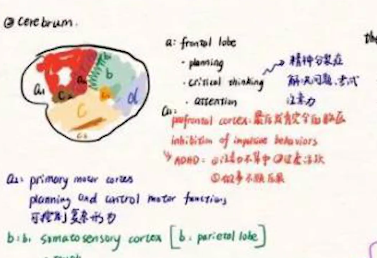 ② cerebrum.
the
a: frontal lobe
· planning
· critical thinking
· attention
精神分裂症
解决问题、考试
注意力
a₁:
prefrontal cortex:
inhibition of impulsive behaviors
ADHD: ①注意力不集中 ②过度活跃
③做事不顾后果
a₂: primary motor cortex
planning and control motor functions
可控制复杂形为
b: b₁ somatosensory cortex [b: parietal lobe]
a₁
b
d
c